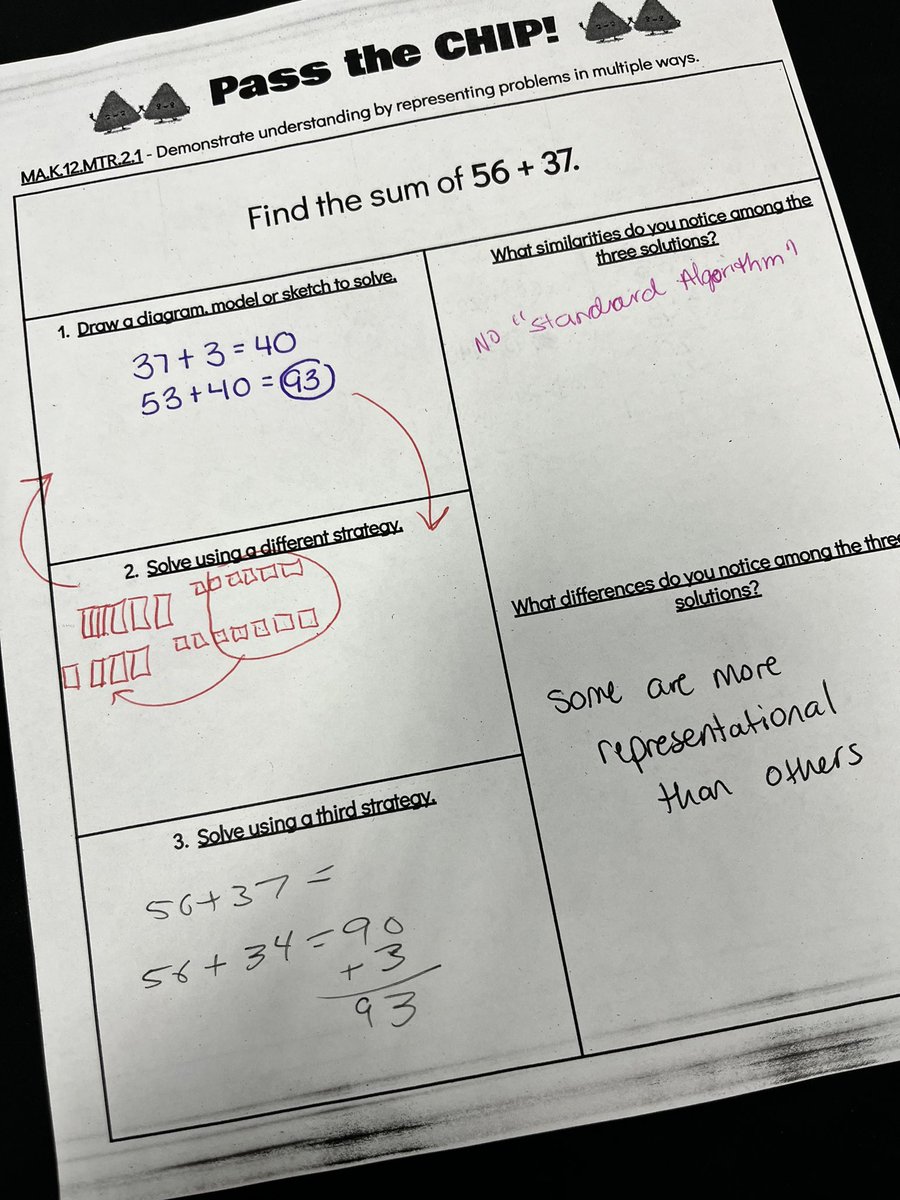 Pass the CHIP!
MA.K.12.MTR.2.1 - Demonstrate understanding by representing problems in multiple ways.
Find the sum of 56 + 37.
1. Draw a diagram, model or sketch to solve.
37 + 3 = 40
53 + 40 = 93
2. Solve using a different strategy.
3. Solve using a third strategy.
56 + 37 =
56 + 34 = 90
+ 3
93
What similarities do you notice among the
three solutions?
No "standard Algorithm"
What differences do you notice among the three
solutions?
Some are more
representational
than others